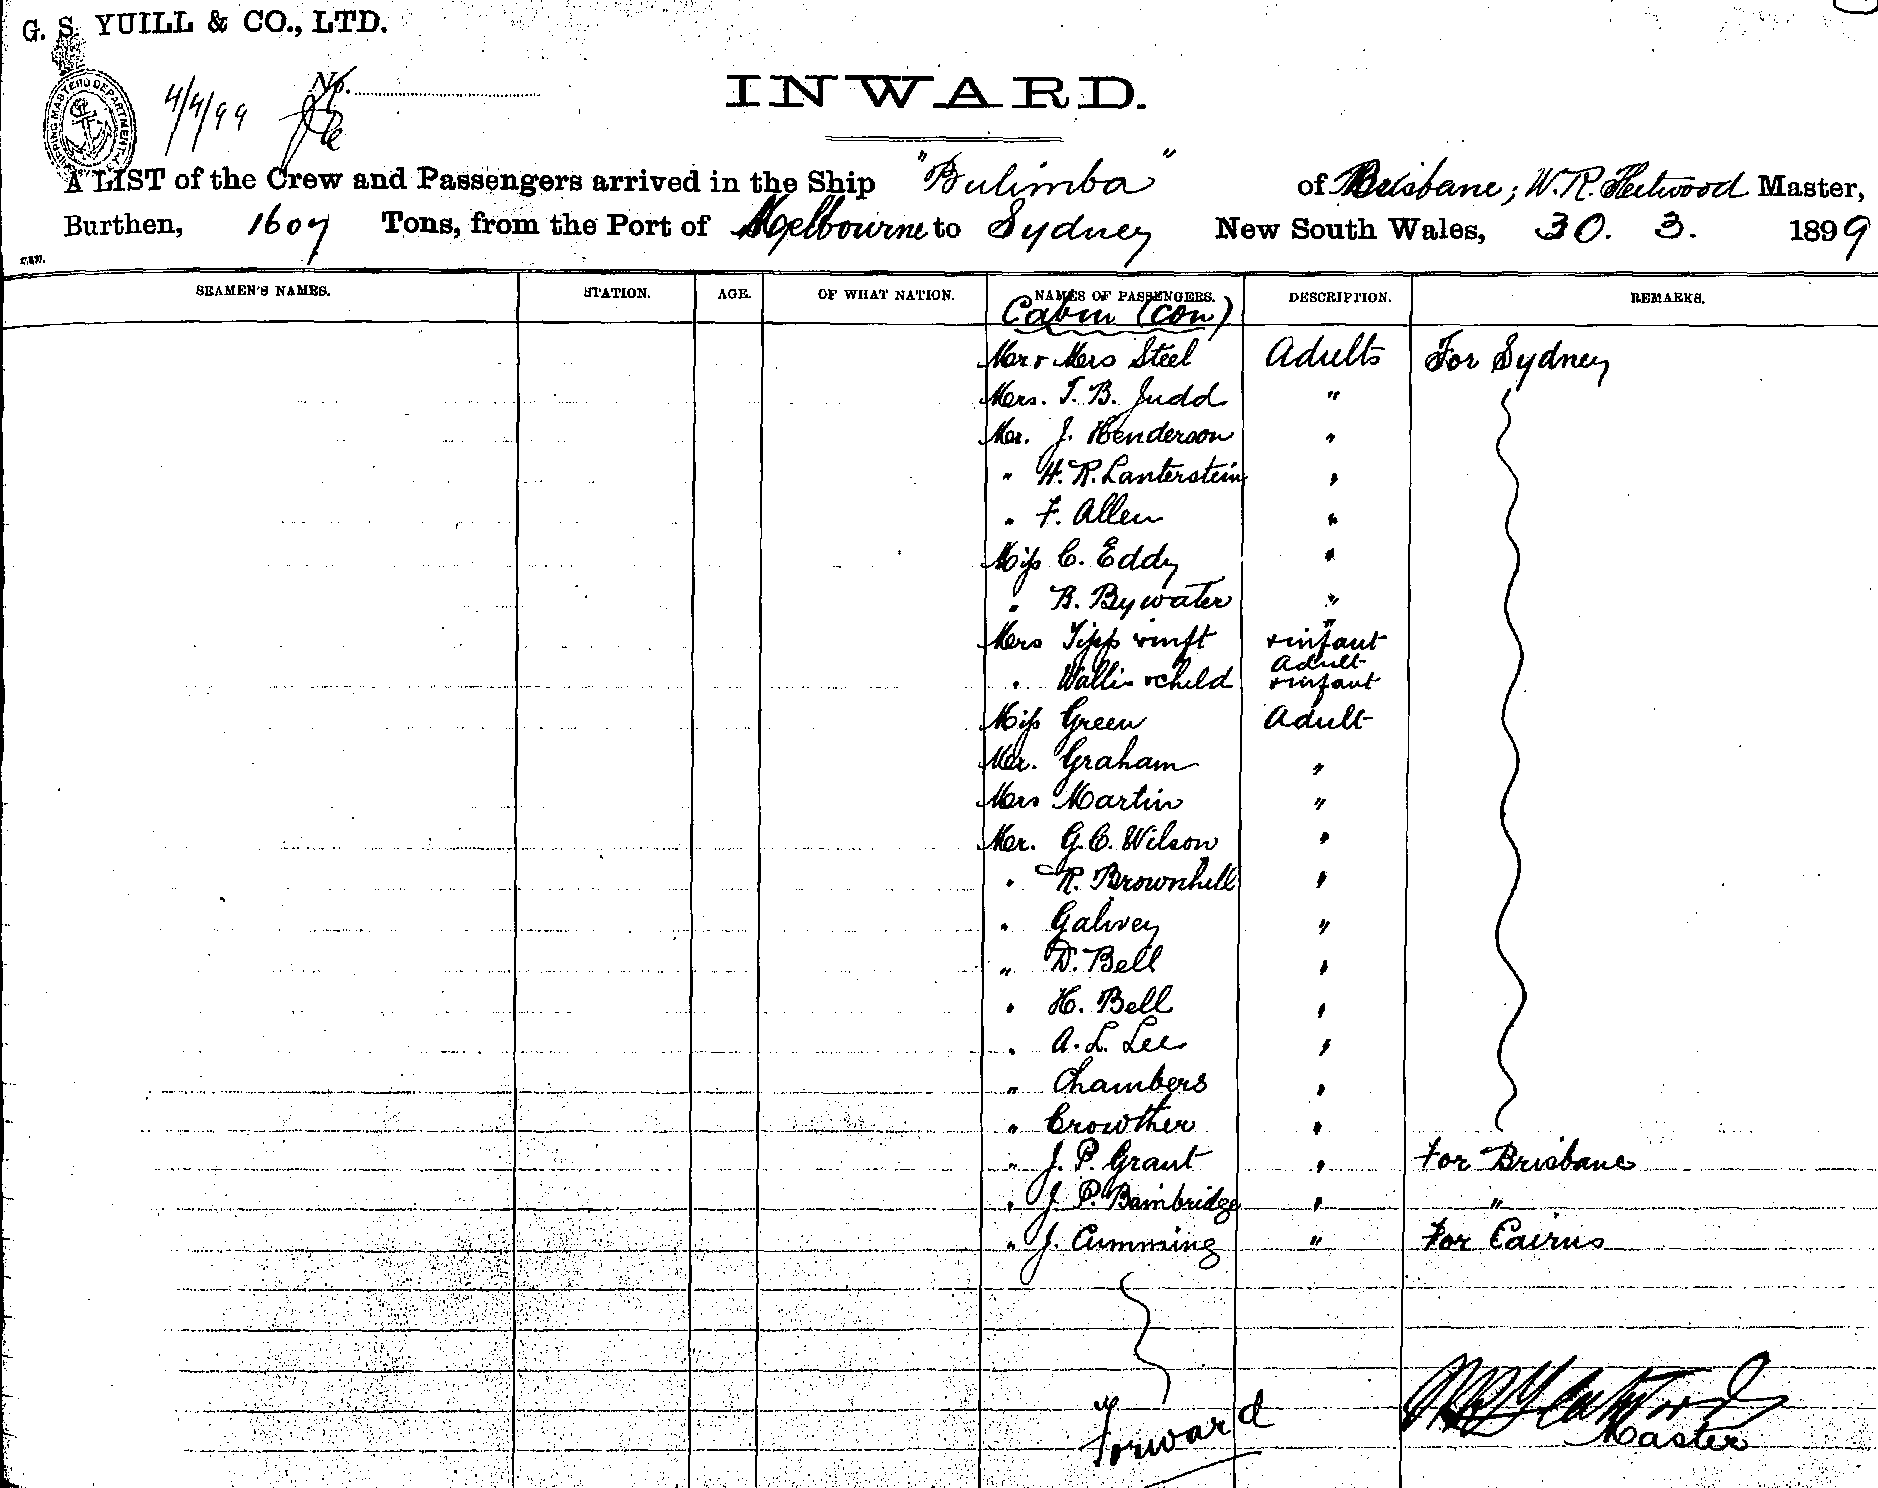 G. S. YUILL & CO., LTD.
4/4/99 No.
INWARD.
A LIST of the Crew and Passengers arrived in the Ship "Bulimba" of Brisbane; W. R. Fleetwood Master,
Burthen, 1607 Tons, from the Port of Melbourne to Sydney New South Wales, 30. 3. 1899
SEAMEN'S NAMES. STATION. AGE. OF WHAT NATION. NAMES OF PASSENGERS. DESCRIPTION. REMARKS.
Cabin (con)
Mr & Mrs Steel Adults For Sydney
Mrs. T. B. Judd "
Mr. J. Henderson "
" H. R. Lanterstein "
" F. Allen "
Miss C. Eddy "
" B. Bywater "
"
Mrs Tipp & inft & infant
Adult
" Wallis & child & infant
Miss Green Adult
Mr. Graham "
Mrs Martin "
Mr. G. C. Wilson "
" R. Brownhill "
" Galvey "
" D. Bell "
" H. Bell "
" A. L. Lee "
" Chambers "
" Crowther "
" J. P. Grant " For Brisbane
" J. P. Bainbridge " "
" J. Cumming " For Cairns
Forward
W R Fleetwood
Master